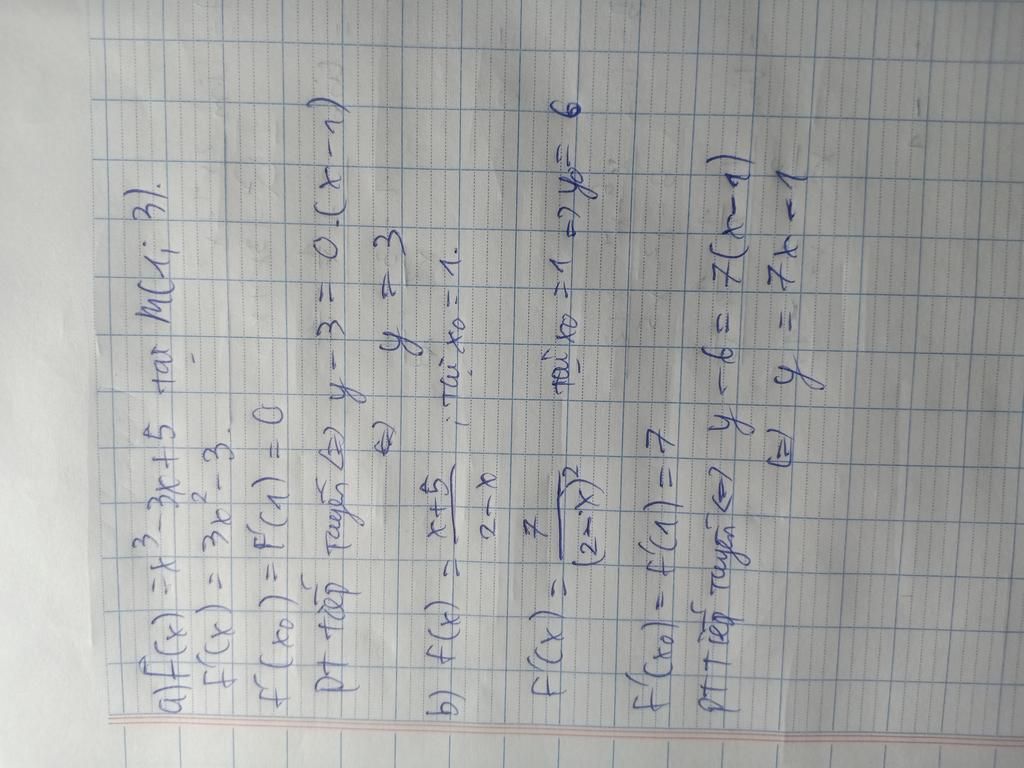 a) f(x) = x³ - 3x + 5 tại M(1; 3).
f'(x) = 3x² - 3.
f'(x₀) = f'(1) = 0
pt tiếp tuyến ⇔ y - 3 = 0.(x - 1)
⇔ y = 3
b) f(x) = (x+5)/(2-x) ; tại x₀ = 1.
f'(x) = 7/(2-x)² tại x₀ = 1 ⇒ y₀ = 6
f'(x₀) = f'(1) = 7
pt tiếp tuyến ⇔ y - 6 = 7(x - 1)
⇔ y = 7x - 1